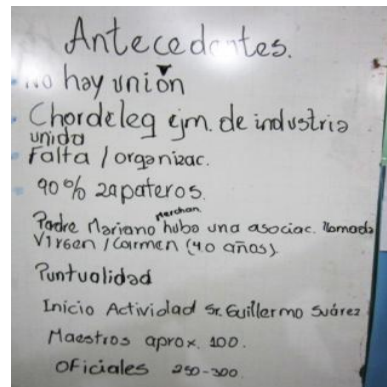 Antecedentes.
- No hay unión
- Chordeleg ejm. de industria
unida
- Falta / organizac.
- 90% zapateros.
Padre Mariano Merchan hubo una asociac. llamada
Virgen / Carmen (40 años)
Puntualidad
Inicio Actividad Sr. Guillermo Suárez
Maestros aprox. 100.
Oficiales 250-300.